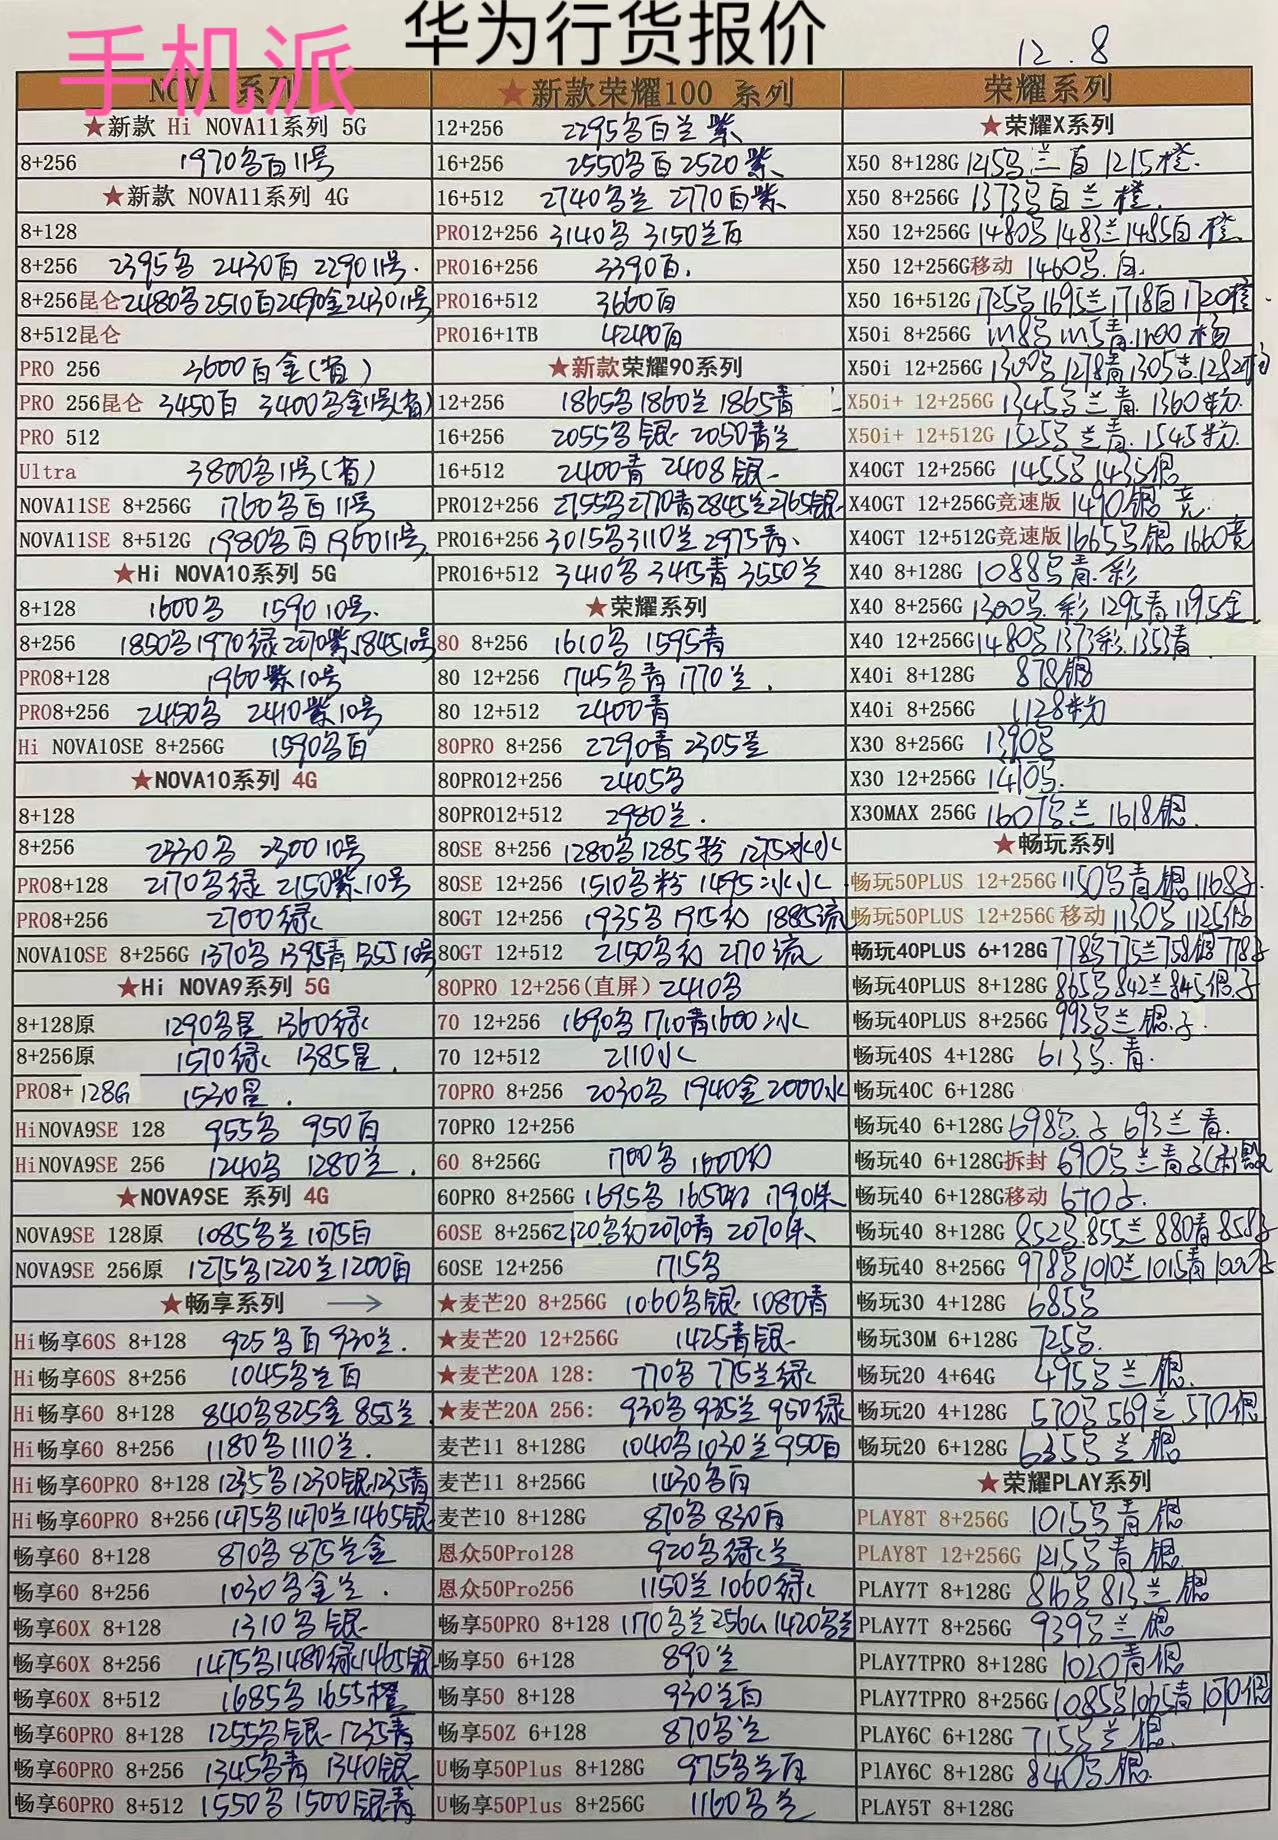 华为行货报价
手机派
12.8
NOVA 系列
★新款 Hi NOVA11系列 5G
8+256 1970多百11号
★新款 NOVA11系列 4G
8+128
8+256 2395多 2430百 2290 11号.
8+256昆仑 2480多2510百2490金2430 11号
8+512昆仑
PRO 256 3600百金(有)
PRO 256昆仑 3450百 3400多金11号(有)
PRO 512
Ultra 3800多11号(有)
NOVA11SE 8+256G 1760多百11号
NOVA11SE 8+512G 1980多百1960 11号
★Hi NOVA10系列 5G
8+128 1600多 1590 10号.
8+256 1850多1970绿2070紫1845 10号
PRO8+128 1960紫10号
PRO8+256 2450多 2410紫10号
Hi NOVA10SE 8+256G 1590多百
★NOVA10系列 4G
8+128
8+256 2330多 2300 10号
PRO8+128 2170多绿 2150紫10号
PRO8+256 2700绿
NOVA10SE 8+256G 1370多1395青1355 10号
★Hi NOVA9系列 5G
8+128原 1290多星 1360绿
8+256原 1570绿 1385星.
PRO8+128G 1530星.
HiNOVA9SE 128 955多 950百
HiNOVA9SE 256 1240多 1280兰.
★NOVA9SE 系列 4G
NOVA9SE 128原 1085多兰1075百
NOVA9SE 256原 1275多1220兰1200百
★畅享系列 →
Hi畅享60S 8+128 925多百 930兰.
Hi畅享60S 8+256 1045多兰百
Hi畅享60 8+128 840多825金 855兰
Hi畅享60 8+256 1180多1110兰.
Hi畅享60PRO 8+128 1235多1230银1235青
Hi畅享60PRO 8+256 1475多1470兰1465银
畅享60 8+128 870多 875兰金
畅享60 8+256 1030多金兰.
畅享60X 8+128 1310多银
畅享60X 8+256 1475多1480绿1465银
畅享60X 8+512 1685多 1655橙
畅享60PRO 8+128 1255多银 1235青
畅享60PRO 8+256 1345多青 1340银
畅享60PRO 8+512 1550多 1500银青
★新款荣耀100 系列
12+256 2295多百兰紫
16+256 2550多百2520紫
16+512 2740多兰 2770百紫
PRO12+256 3140多 3150兰百
PRO16+256 3390百.
PRO16+512 3660百
PRO16+1TB 4240百
★新款荣耀90系列
12+256 1865多1860兰1865青
16+256 2055多银 2050青兰
16+512 2400青 2408银
PRO12+256 2755多2770青2845兰2765银
PRO16+256 3015多3110兰2975青
PRO16+512 3410多3415青3550兰
★荣耀系列
80 8+256 1610多 1595青
80 12+256 1745多青1770兰.
80 12+512 2400青
80PRO 8+256 2290青2305兰
80PRO12+256 2405多
80PRO12+512 2980兰.
80SE 8+256 1280多1285粉 1275冰水
80SE 12+256 1510多粉 1495冰水
80GT 12+256 1935多1915幻 1885流
80GT 12+512 2150多幻 2170流
80PRO 12+256(直屏) 2410多
70 12+256 1690多1710青1600冰
70 12+512 2110水
70PRO 8+256 2030多 1940金2000水
70PRO 12+256
60 8+256G 1700多1600幻
60PRO 8+256G 1695多1650幻1790朱
60SE 8+256 2120多幻2070青2070朱
60SE 12+256 1715多
★麦芒20 8+256G 1060多银1080青
★麦芒20 12+256G 1425青银
★麦芒20A 128: 770多 775兰绿
★麦芒20A 256: 930多935兰950绿
麦芒11 8+128G 1040多1030兰950百
麦芒11 8+256G 1430多百
麦芒10 8+128G 870多830百
恩众50Pro128 920多绿兰
恩众50Pro256 1150兰1060绿
畅享50PRO 8+128 1170多兰256G1420多兰
畅享50 6+128 890兰
畅享50 8+128 930兰百
畅享50Z 6+128 870多兰
U畅享50Plus 8+128G 975多兰百
U畅享50Plus 8+256G 1160多兰
荣耀系列
★荣耀X系列
X50 8+128G 1215多兰百1215橙.
X50 8+256G 1373多百兰橙.
X50 12+256G 1480多1483兰1485百橙
X50 12+256G移动 1460多.百.
X50 16+512G 1725多1695兰1718百1720橙
X50i 8+256G 1118多1115青.1100
X50i 12+256G 1300多1278青1305 1282
X50i+ 12+256G 1345多兰青.1360粉
X50i+ 12+512G 1525多兰青.1545粉.
X40GT 12+256G 1455多1435银
X40GT 12+256G竞速版 1490银竞
X40GT 12+512G竞速版 1665多银1660竞
X40 8+128G 1088多青.彩
X40 8+256G 1300多彩1295青1195金
X40 12+256G 1480多1373彩1353青
X40i 8+128G 878银
X40i 8+256G 1128粉
X30 8+256G 1390多
X30 12+256G 1410多.
X30MAX 256G 1607多兰1618银
★畅玩系列
畅玩50PLUS 12+256G 1150多青银1168子
畅玩50PLUS 12+256G移动 1130多1125银
畅玩40PLUS 6+128G 778多775兰758银778子
畅玩40PLUS 8+128G 865多842兰845银.子
畅玩40PLUS 8+256G 993多兰银.子.
畅玩40S 4+128G 613多.青.
畅玩40C 6+128G
畅玩40 6+128G 698多.子693兰青.
畅玩40 6+128G拆封 690多兰青子
畅玩40 6+128G移动 670子.
畅玩40 8+128G 852多855兰880青858子
畅玩40 8+256G 978多1010兰1015青1000子
畅玩30 4+128G 685多
畅玩30M 6+128G 725多.
畅玩20 4+64G 495多兰银.
畅玩20 4+128G 570多569兰570银
畅玩20 6+128G 635多兰银
★荣耀PLAY系列
PLAY8T 8+256G 1015多青银
PLAY8T 12+256G 1215多青银
PLAY7T 8+128G 816多813兰银
PLAY7T 8+256G 939多兰银
PLAY7TPRO 8+128G 1020青银
PLAY7TPRO 8+256G 1085多1065青1070银
PLAY6C 6+128G 715多兰银.
PlAY6C 8+128G 840多银.
PLAY5T 8+128G